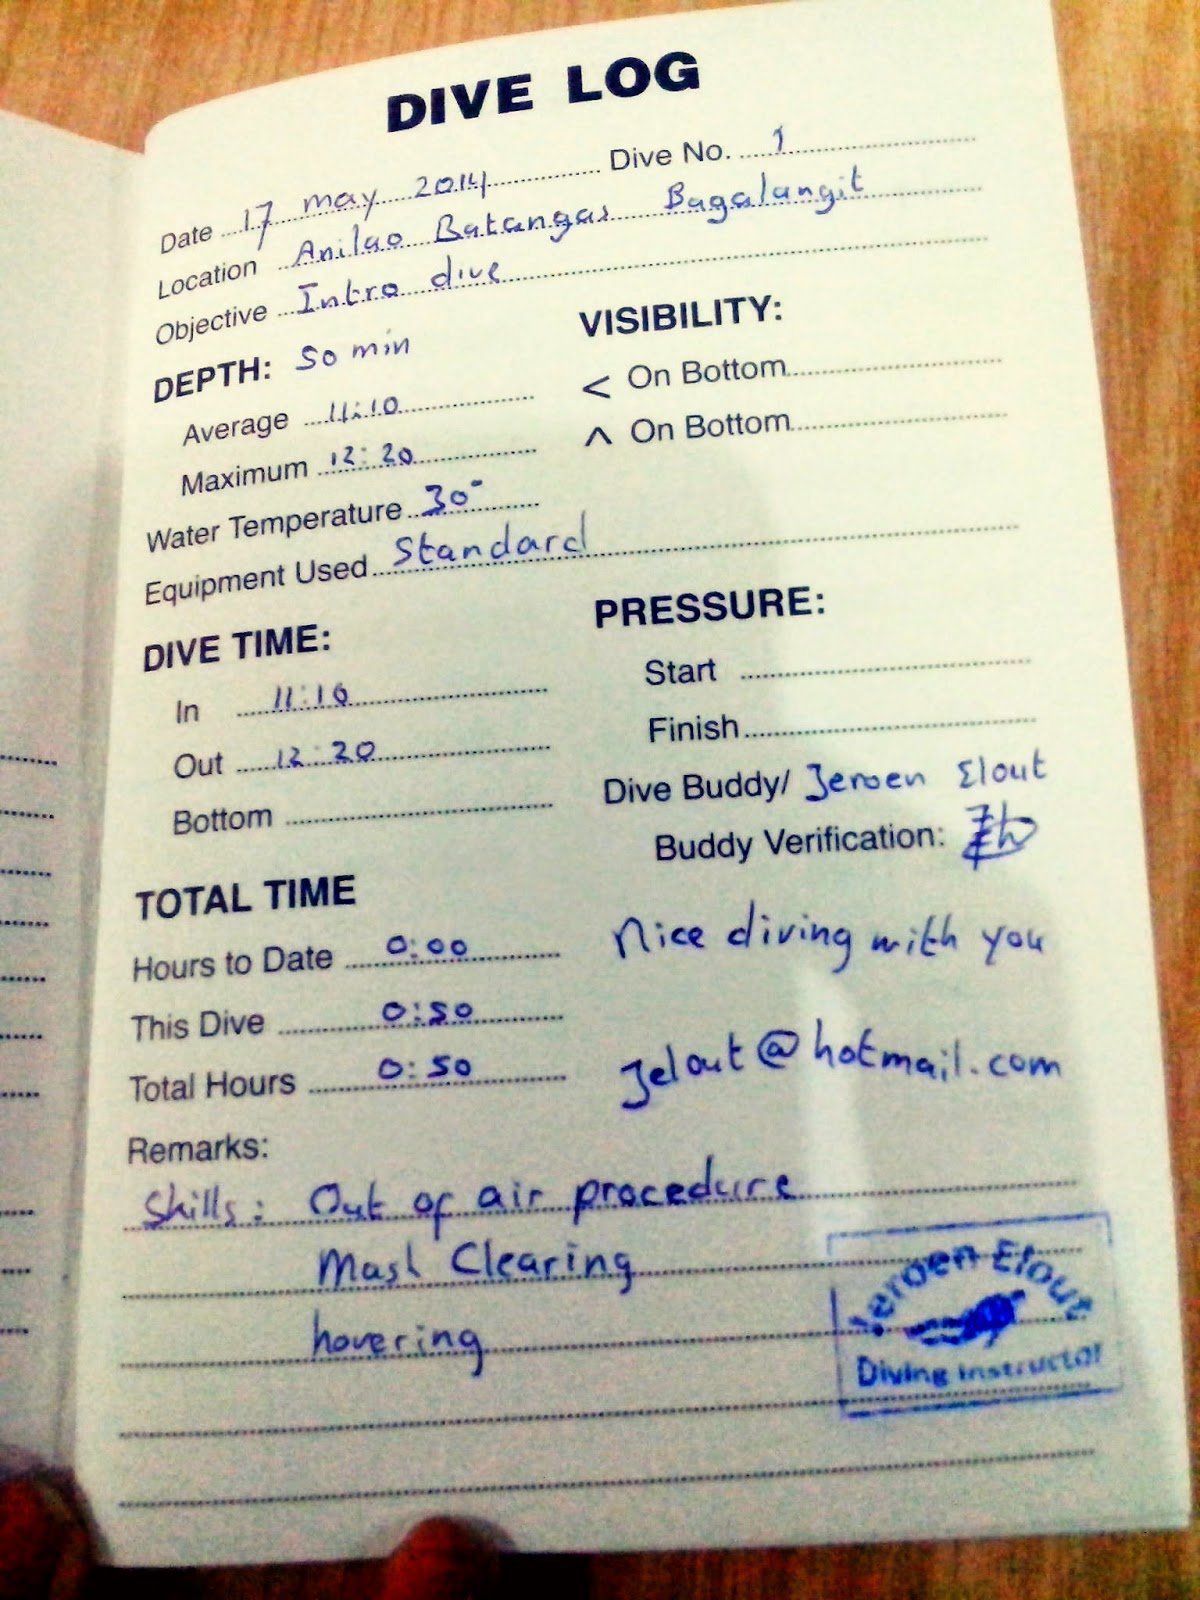 DIVE LOG
Date 17 may 2014 Dive No. 1
Location Anilao Batangas Bagalangit
Objective Intro dive
DEPTH: 50 min
Average 11:10
Maximum 12:20
Water Temperature 30°
Equipment Used Standard
VISIBILITY:
< On Bottom
^ On Bottom
DIVE TIME:
In 11:10
Out 12:20
Bottom
PRESSURE:
Start
Finish
Dive Buddy/ Jeroen Elout
Buddy Verification:
Nice diving with you
jelout@hotmail.com
TOTAL TIME
Hours to Date 0:00
This Dive 0:50
Total Hours 0:50
Remarks:
Skills: Out of air procedure
Mask Clearing
hovering
Jeroen Elout
Diving Instructor